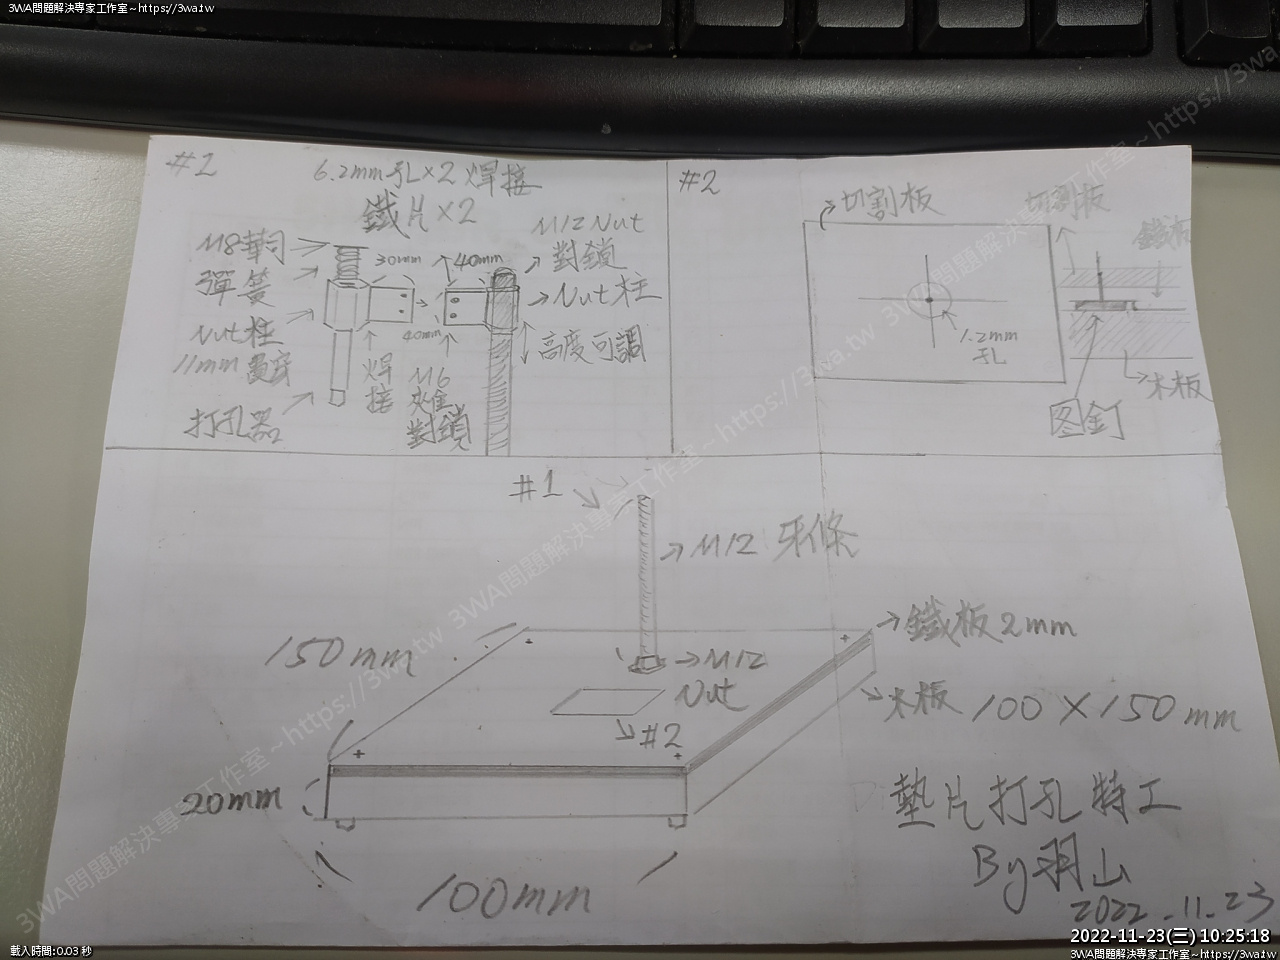 3WA問題解決專家工作室~https://3wa.tw
3WA問題解決專家工作室~https://3wa.tw
#1
6.2mm孔×2 焊接
鐵片×2
M8華司
彈簧
Nut柱
11mm貫穿
打孔器
30mm
40mm
40mm
焊接
M6
對鎖
M12 Nut
對鎖
Nut柱
高度可調
#2
切割板
1.2mm
孔
切割板
鐵板
木板
图釘
#1
M12 牙條
M12
Nut
#2
鐵板2mm
木板 100×150mm
150mm
20mm
100mm
墊片打孔特工
By羽山
2022.11.23
2022-11-23(三) 10:25:18
載入時間:0.03 秒
3WA問題解決專家工作室~https://3wa.tw